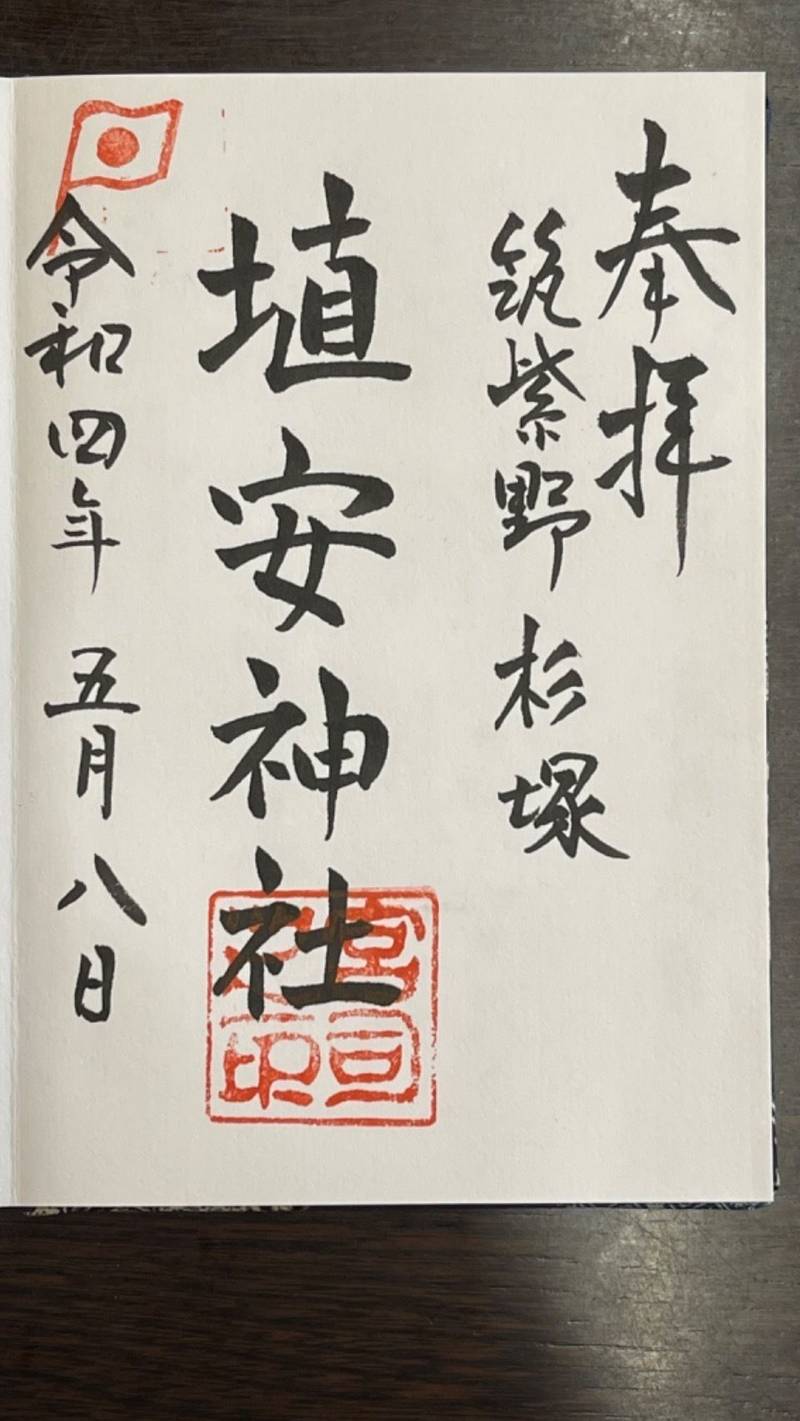 奉拝
筑紫野 杉塚
埴安神社
令和四年 五月 八日
宮司之印